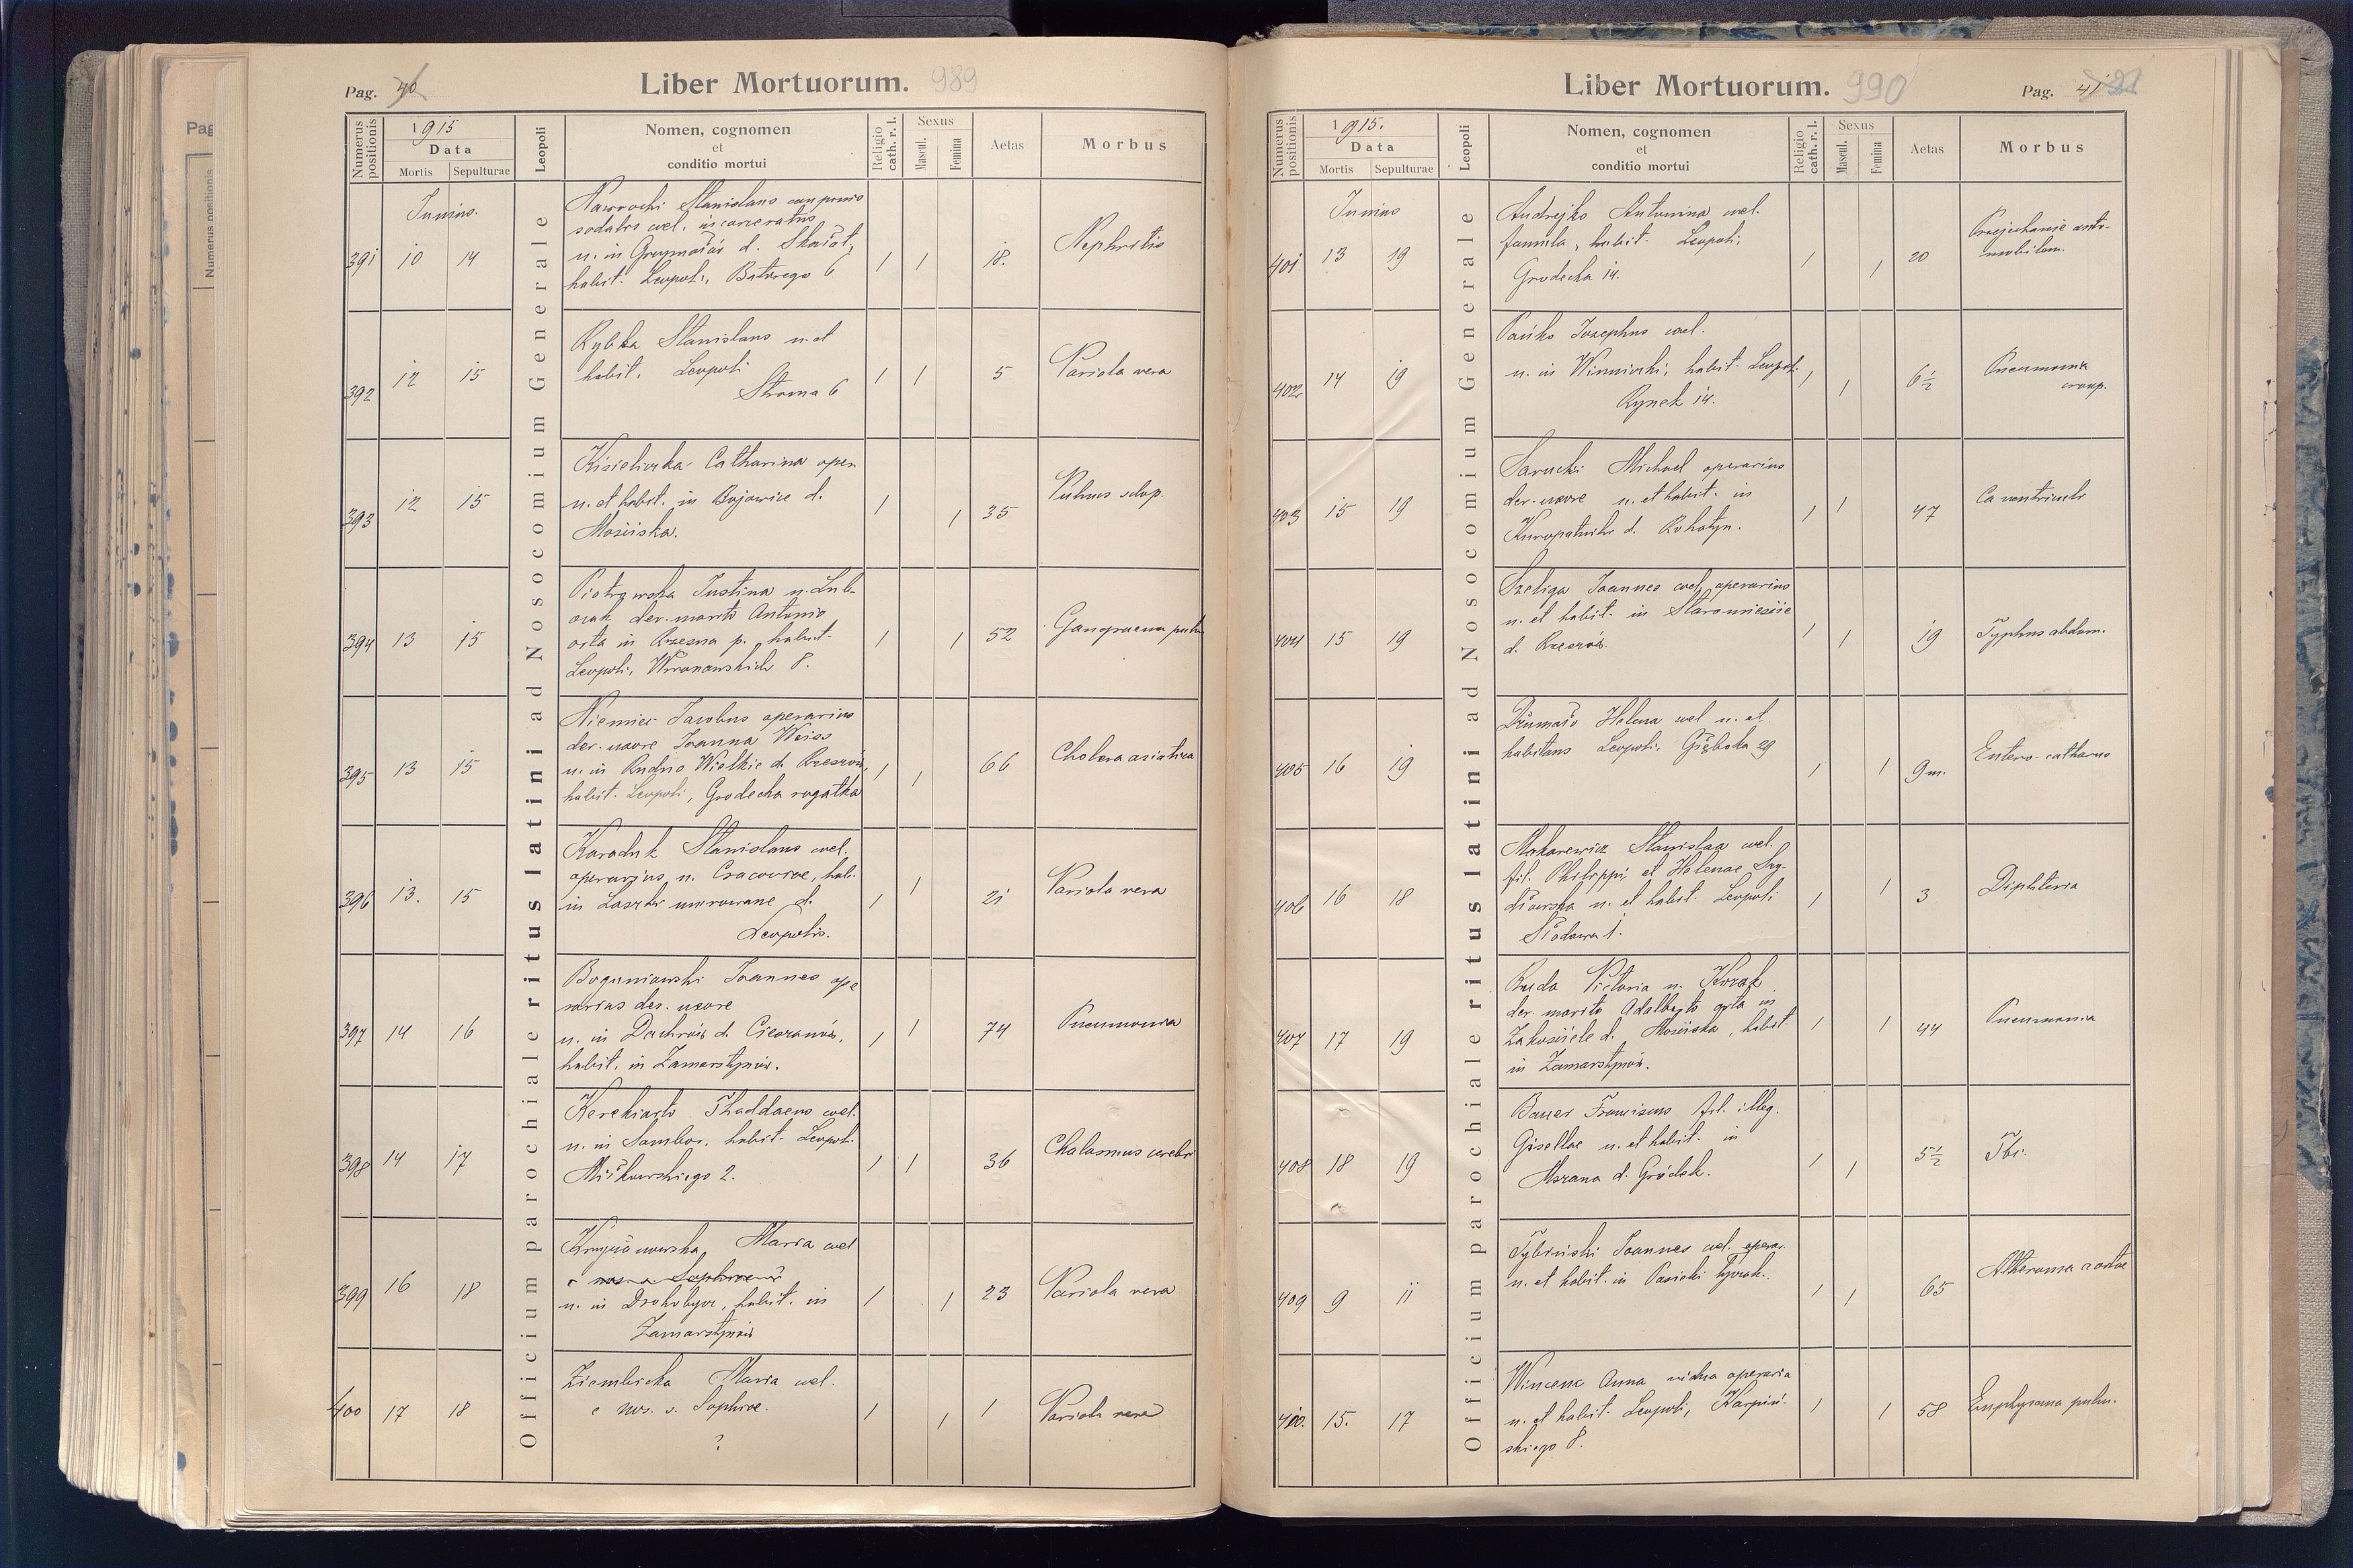 Pag. 40
Liber Mortuorum. 989
Numerus positionis
1915
Data
Mortis
Sepulturae
Leopoli
Nomen, cognomen
et
conditio mortui
Religio cath. r. l.
Sexus
Mascul.
Femina
Aetas
Morbus
Officium parochiale ritus latini ad Nosocomium Generale
Junius.
391 10 14
Nawrocki Stanislaus
sodalis cael. incarceratus
n. in Grzymałów d. Skałat,
habit. Leopoli, Batorego 6
1 1 18.
Nephritis
392 12 15
Rybka Stanislaus n. et
habit. Leopoli
Stroma 6
1 1 5
Variola vera
393 12 15
Kisielinka Catharina oper.
n. et habit. in Bojowice d.
Mościska.
1 1 35
Vulnus sclop.
394 13 15
Piotrowska Justina n. Lub-
czak der. marito Antonio
orta in Rzesna p., habit.
Leopoli, Wronowskich 8.
1 1 52
Gangraena pulm
395 13 15
Niemiec Jacobus operarius
der. uxore Joanna Weiss
n. in Rudno Wielkie d. Rzeszów,
habit. Leopoli, Grodecka rogatka
1 1 66
Cholera asiatica
396 13. 15
Karaduk Stanislaus cael.
operarius n. Cracoviae, hab.
in Laszki murowane d.
Leopolis.
1 1 21
Variola vera
397 14 16
Bogumowski Joannes ope
rarius der. uxore
n. in Dachnów d. Cieszanów,
habit. in Zamarstynów.
1 1 74
Pneumonia
398 14 17
Kerekiarto Thaddaeus cael.
n. in Sambor, habit. Leopol.
Miłkowskiego 2.
1 1 36
Chalasmus cerebri
399 16 18
Maria cael
n. in Drohobycz, habit. in
Zamarstynów
1 1 23
Variola vera
400 17 18
Ziembicka Maria cael.
e nos. s. Sophiae.
?
1 1 1
Variola vera
Liber Mortuorum. 990
Pag. 41
Numerus positionis
1915.
Data
Mortis
Sepulturae
Leopoli
Nomen, cognomen
et
conditio mortui
Religio cath. r. l.
Sexus
Mascul.
Femina
Aetas
Morbus
Officium parochiale ritus latini ad Nosocomium Generale
Junius
401 13 19
Andrejko Antonina cael.
famula, habit. Leopoli,
Grodecka 14.
1 1 20
Przejechanie auto-
mobilem.
402 14 19
Pańko Josephus cael.
n. in Winniczki, habit. Leopol.
Rynek 14.
1 1 6½
Pneumonia
croup.
403 15 19
Sarucki Michael operarius
der. uxore n. et habit. in
Kuropatniki d. Rohatyn.
1 1 47
Ca ventriculi
404 15 19
Szeliga Joannes cael. operarius
n. et habit. in Staromieście
d. Rzeszów.
1 1 19
Typhus abdom.
405 16 19
Helena cael n. et
habitans Leopoli, Głęboka 29
1 1 9m.
Entero-catharus
406 16 18
Makarewicz Stanislaa cael.
fil. Philippi et Helenae
n. et habit. Leopoli
Słodowa 1.
1 1 3
Diphteria
407 17 19
Ruda Victoria n. Kozak
der. marito Adalberto orta in
Zakościele d. Mościska, habit.
in Zamarstynów.
1 1 44
Pneumonia
408 18 19
Bauer Franciscus fil. illeg.
Gisellae n. et habit. in
Mszana d. Gródek.
1 1 5½
Tbc.
409 9 11
Tybiński Joannes cael. operar.
n. et habit. in Pasieki
1 1 65
Atheroma aortae
410. 15. 17
Wincenc Anna vidua operaria
n. et habit. Leopoli, Karpiń-
skiego 8.
1 1 58
Emphysema pulm.